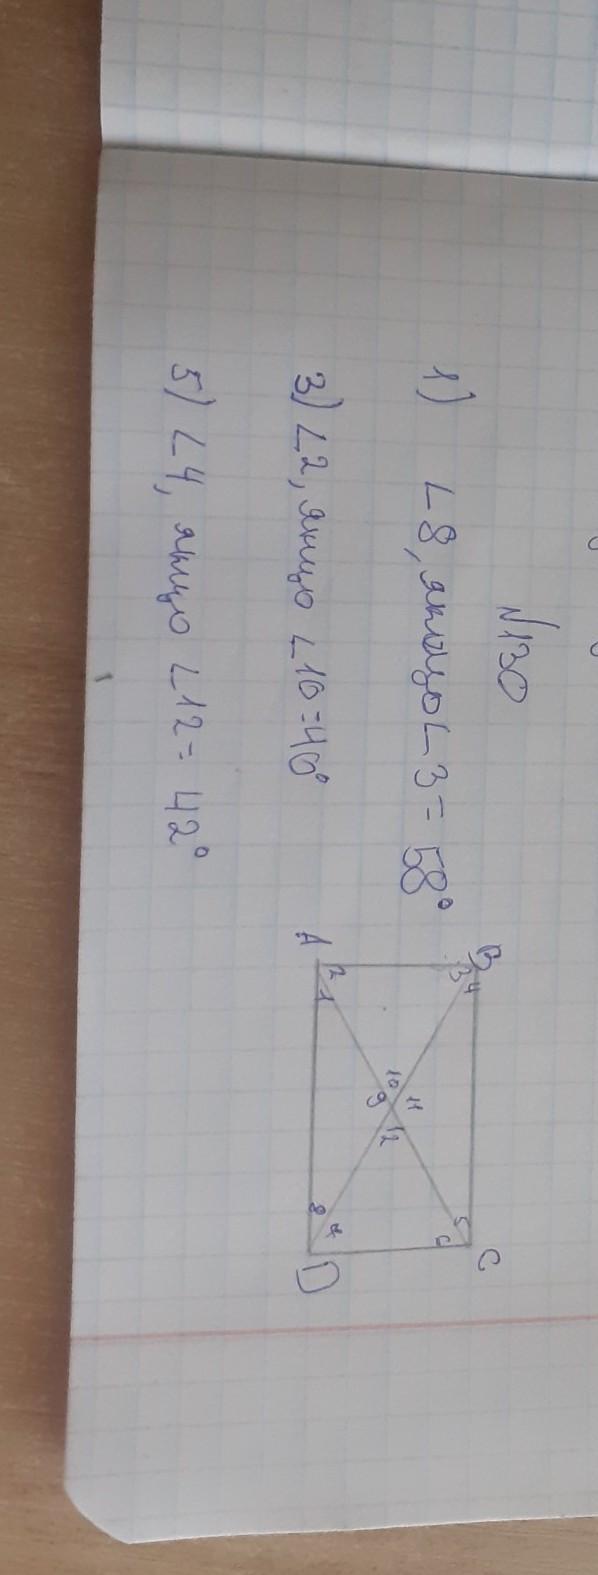 №130
1) ∠8, якщо ∠3 = 58°
3) ∠2, якщо ∠10 = 40°
5) ∠4, якщо ∠12 = 42°
B C
3 4 5 6
11
10 12
9
2 1 8 7
A D